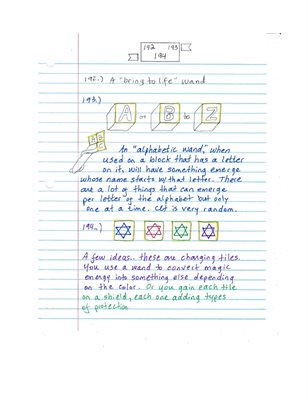 192 193
194
192.) A "bring to life" wand
193.)
A or B to Z
A B
C
An "alphabetic wand," when
used on a block that has a letter
on it, will have something emerge
whose name starts w/that letter. There
are a lot of things that can emerge
per letter of the alphabet but only
one at a time. It is very random.
194.)
A few ideas.. these are changing tiles.
You use a wand to convert magic
energy into something else depending
on the color. Or you gain each tile
on a shield, each one adding types
of protection